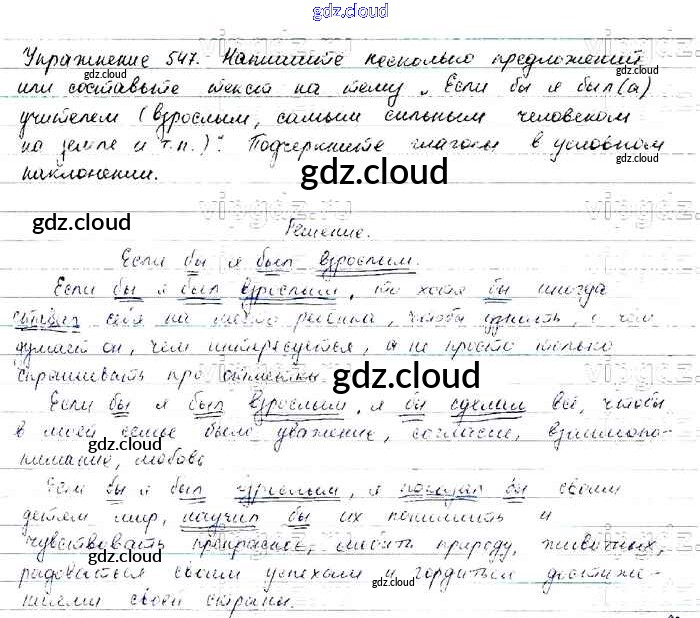 gdz.cloud
Упражнение 547. Напишите несколько предложений
или составьте текст на тему „Если бы я был(а)
учителем (взрослым, самым сильным человеком
на земле и т.п.)". Подчеркните глаголы в условном
наклонении.
Решение.
Если бы я был взрослым.
Если бы я был взрослым, то хотя бы иногда
ставил себя на место ребёнка, чтобы узнать, о чём
думает он, чем интересуется, а не просто только
спрашивать про отметки.
Если бы я был взрослым, я бы сделал всё, чтобы
в моей семье было уважение, согласие, взаимопо-
нимание, любовь
Если бы я был взрослым, я показал бы своим
детям мир, научил бы их понимать и
чувствовать прекрасное, любить природу, животных,
радоваться своим успехам и гордиться достиже-
ниями своей страны.